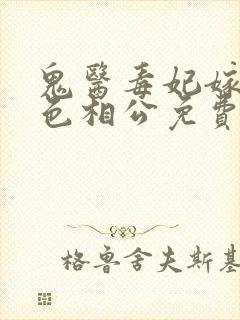 鬼醫毒妃嫁
色相公免費
格魯舍夫斯基